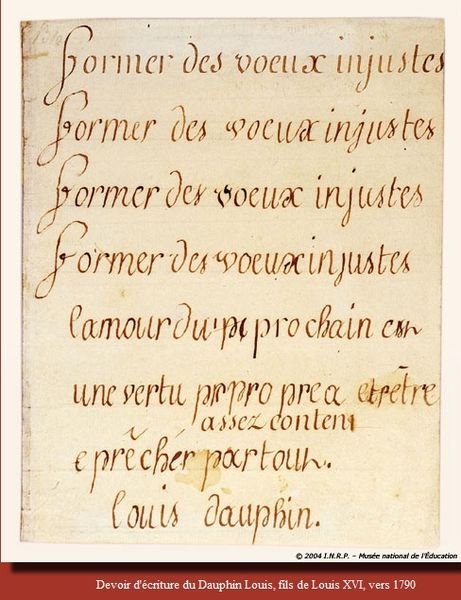 former des voeux injustes
former des voeux injustes
former des voeux injustes
former des voeux injustes
l'amour du prochain est
une vertu propre a etrêtre
assez content
e prêchér partour.
louis dauphin.
© 2004 I.N.R.P. – Musée national de l'Éducation
Devoir d'écriture du Dauphin Louis, fils de Louis XVI, vers 1790